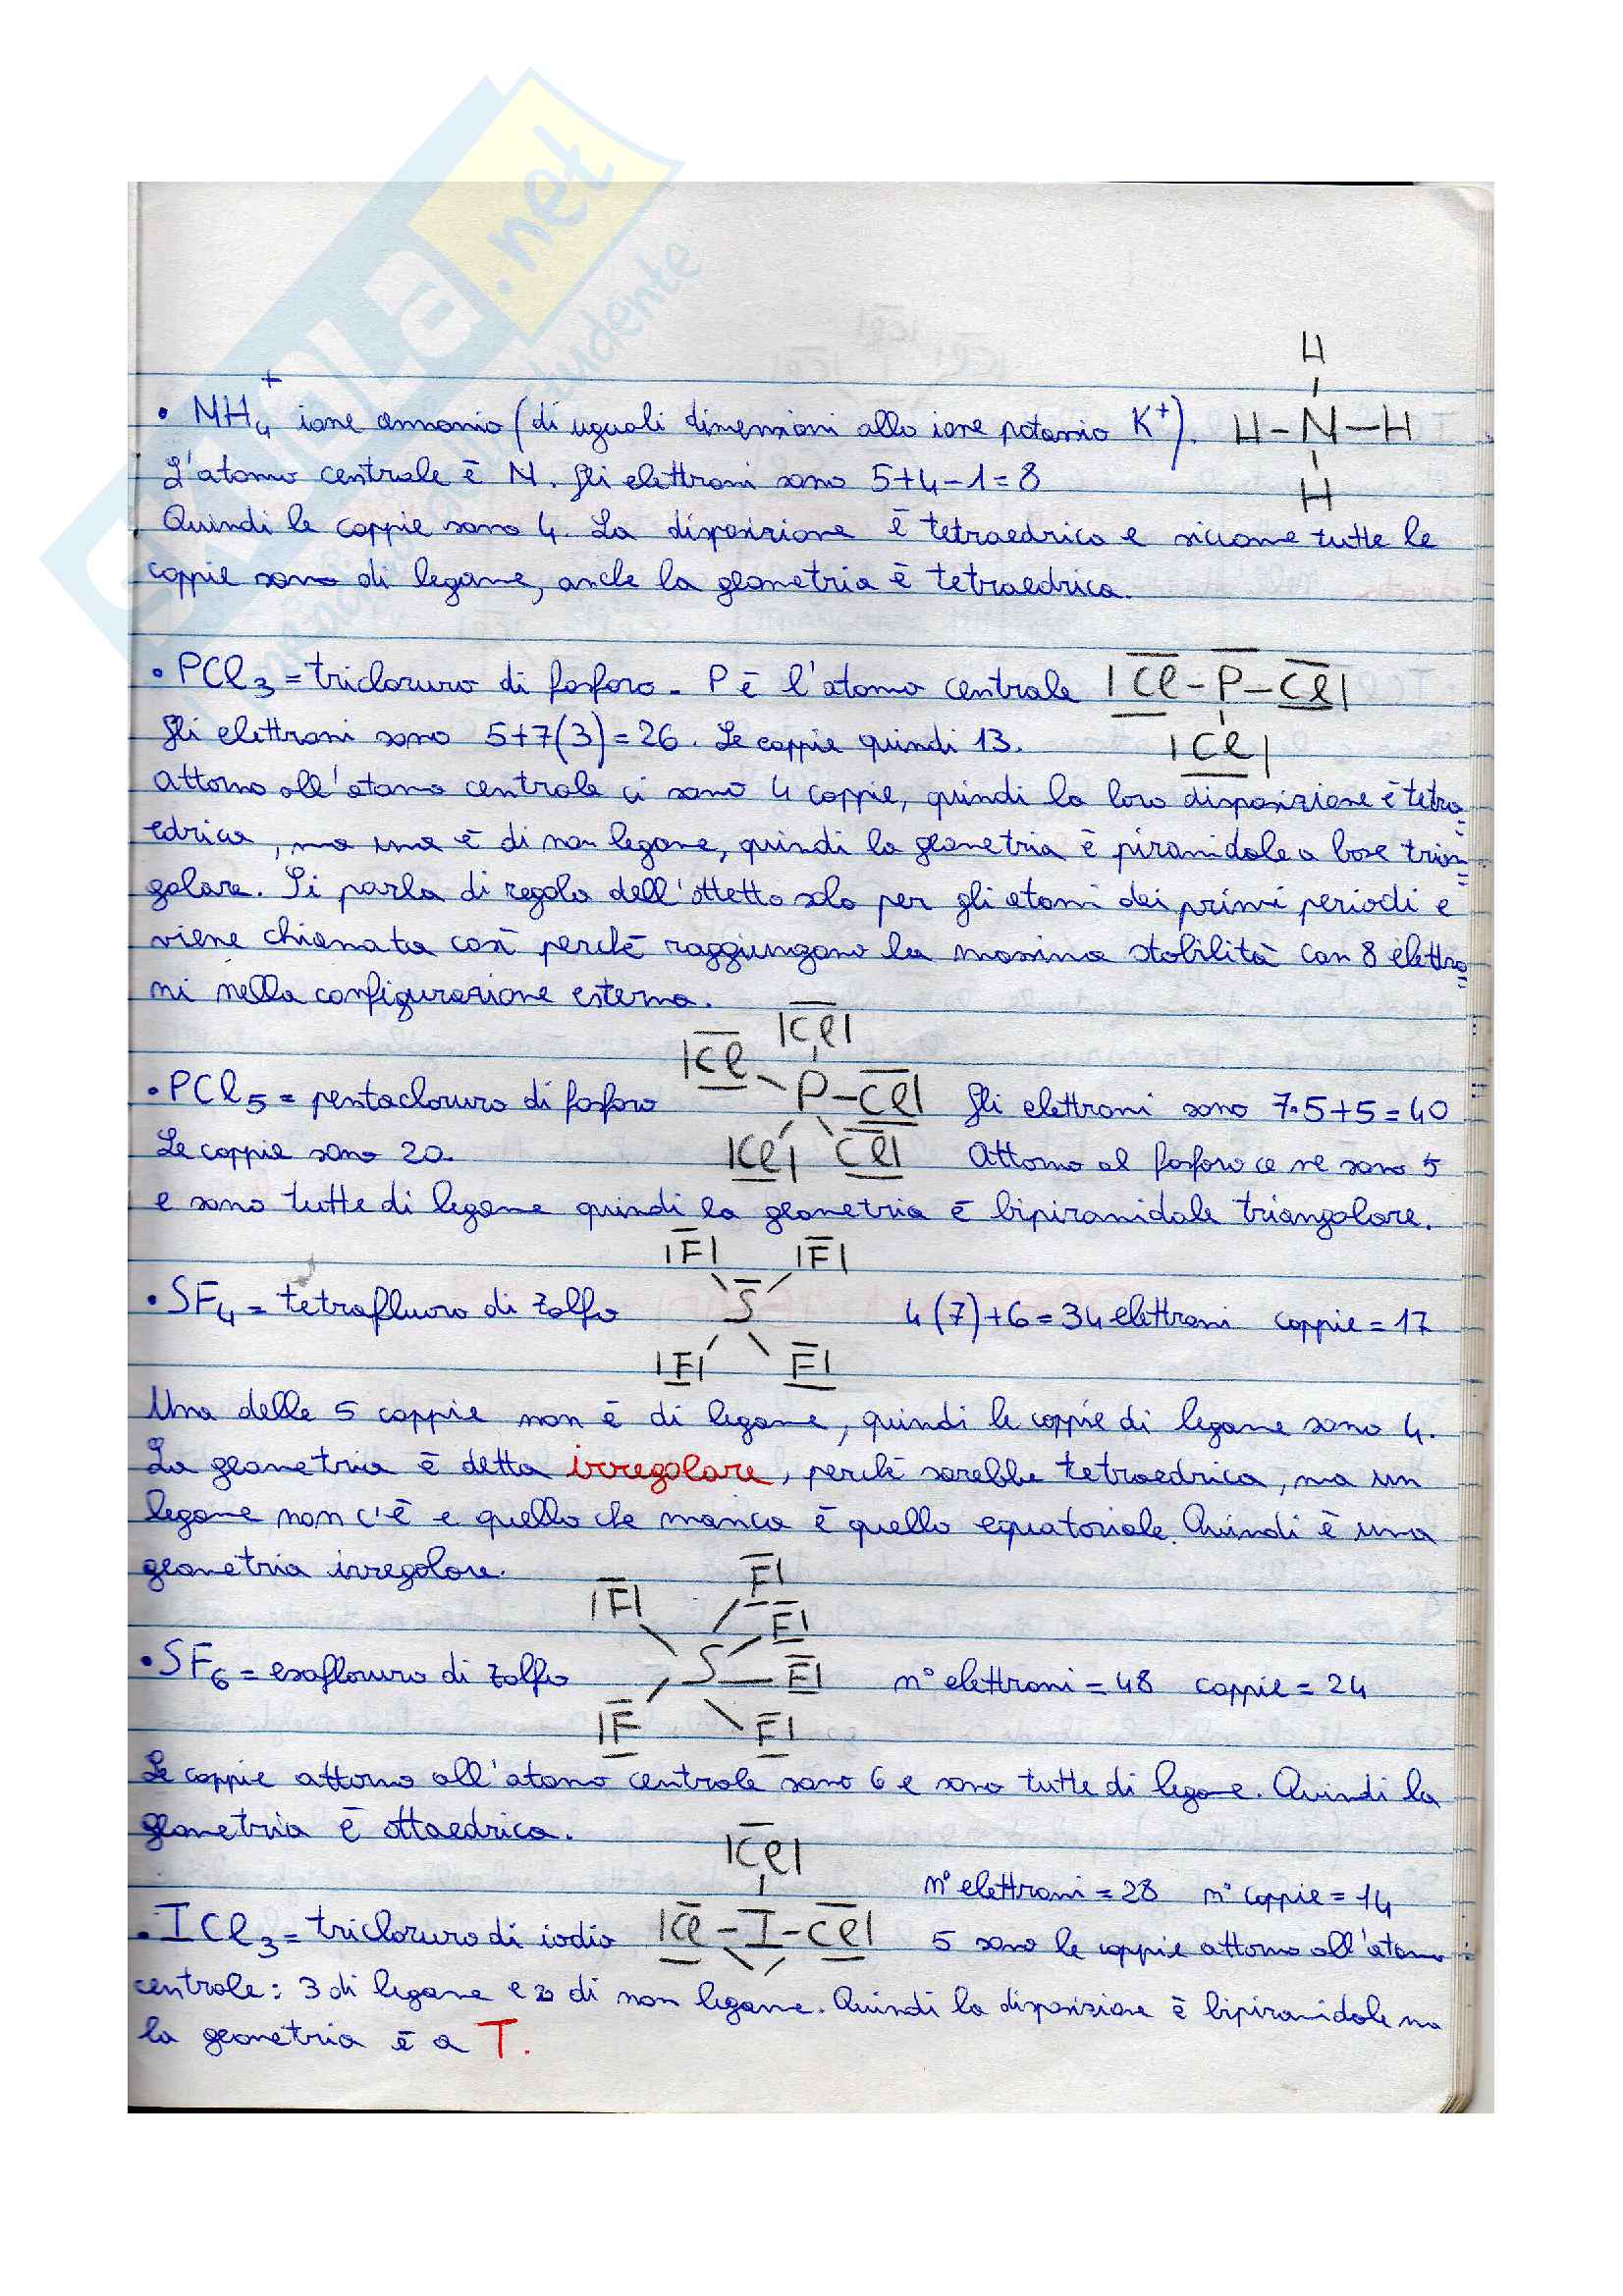 • NH₄⁺ ione ammonio (di uguali dimensioni allo ione potassio K⁺).
H
H–N–H
H
L'atomo centrale è N. Gli elettroni sono 5+4-1=8
Quindi le coppie sono 4. La disposizione è tetraedrica e siccome tutte le
coppie sono di legame, anche la geometria è tetraedrica.
• PCl₃ = tricloruro di fosforo - P è l'atomo centrale
|Cl–P–Cl|
|Cl|
Gli elettroni sono 5+7(3)=26. Le coppie quindi 13.
Attorno all'atomo centrale ci sono 4 coppie, quindi la loro disposizione è tetra=
edrica, ma una è di non legame, quindi la geometria è piramidale a base trian=
golare. Si parla di regola dell'ottetto solo per gli atomi dei primi periodi e
viene chiamata così perchè raggiungono la massima stabilità con 8 elettro=
ni nella configurazione esterna.
|Cl|
|Cl
P–Cl|
|Cl| Cl|
• PCl₅ = pentacloruro di fosforo
Gli elettroni sono 7·5+5=40
Le coppie sono 20.
Attorno al fosforo ce ne sono 5
e sono tutte di legame quindi la geometria è bipiramidale triangolare.
|F| |F|
S
|F| F|
• SF₄ = tetrafluoro di zolfo
4(7)+6=34 elettroni coppie = 17
Una delle 5 coppie non è di legame, quindi le coppie di legame sono 4.
La geometria è detta irregolare, perchè sarebbe tetraedrica, ma un
legame non c'è e quello che manca è quello equatoriale. Quindi è una
geometria irregolare.
F|
|F| F|
S – F|
|F F|
• SF₆ = esafloururo di zolfo
n° elettroni = 48 coppie = 24
Le coppie attorno all'atomo centrale sono 6 e sono tutte di legame. Quindi la
geometria è ottaedrica.
|Cl|
|Cl–I–Cl|
n° elettroni = 28 n° coppie = 14
• ICl₃ = tricloruro di iodio
5 sono le coppie attorno all'atomo
centrale: 3 di legame e 2 di non legame. Quindi la disposizione è bipiramidale ma
la geometria è a T.
.net